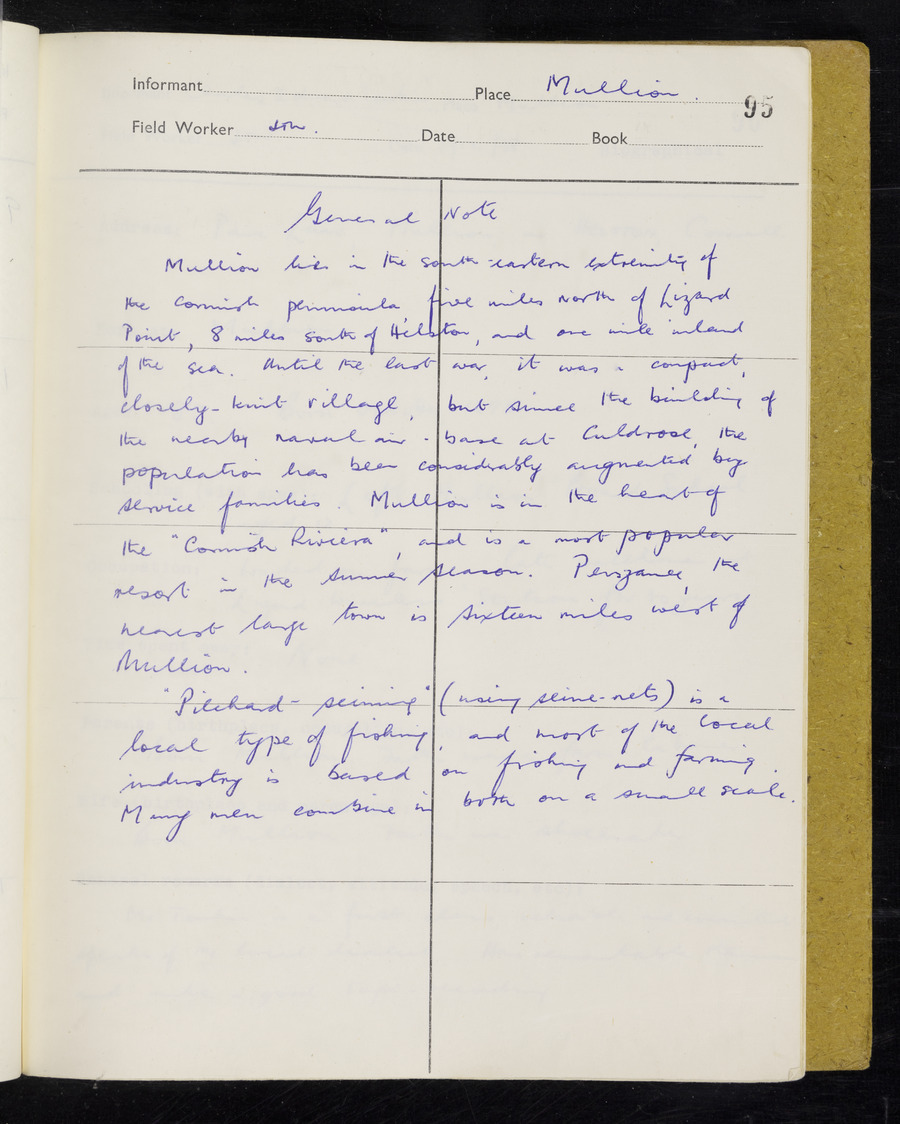 Informant Place Mullion.
95
Field Worker Date Book
General Note
Mullion lies in the south-eastern extremity of
the Cornish peninsula, five miles north of Lizard
Point, 8 miles south of Helston, and one mile inland
of the sea. Until the last war, it was a compact,
closely-knit village, but since the building of
the nearby naval air-base at Culdrose, the
population has been considerably augmented by
service families. Mullion is in the heart of
the "Cornish Riviera", and is a most popular
resort in the summer season. Penzance, the
nearest large town is sixteen miles west of
Mullion.
"Pilchard-seining" (using seine-nets) is a
local type of fishing, and most of the local
industry is based on fishing and farming.
Many men combine in both on a small scale.